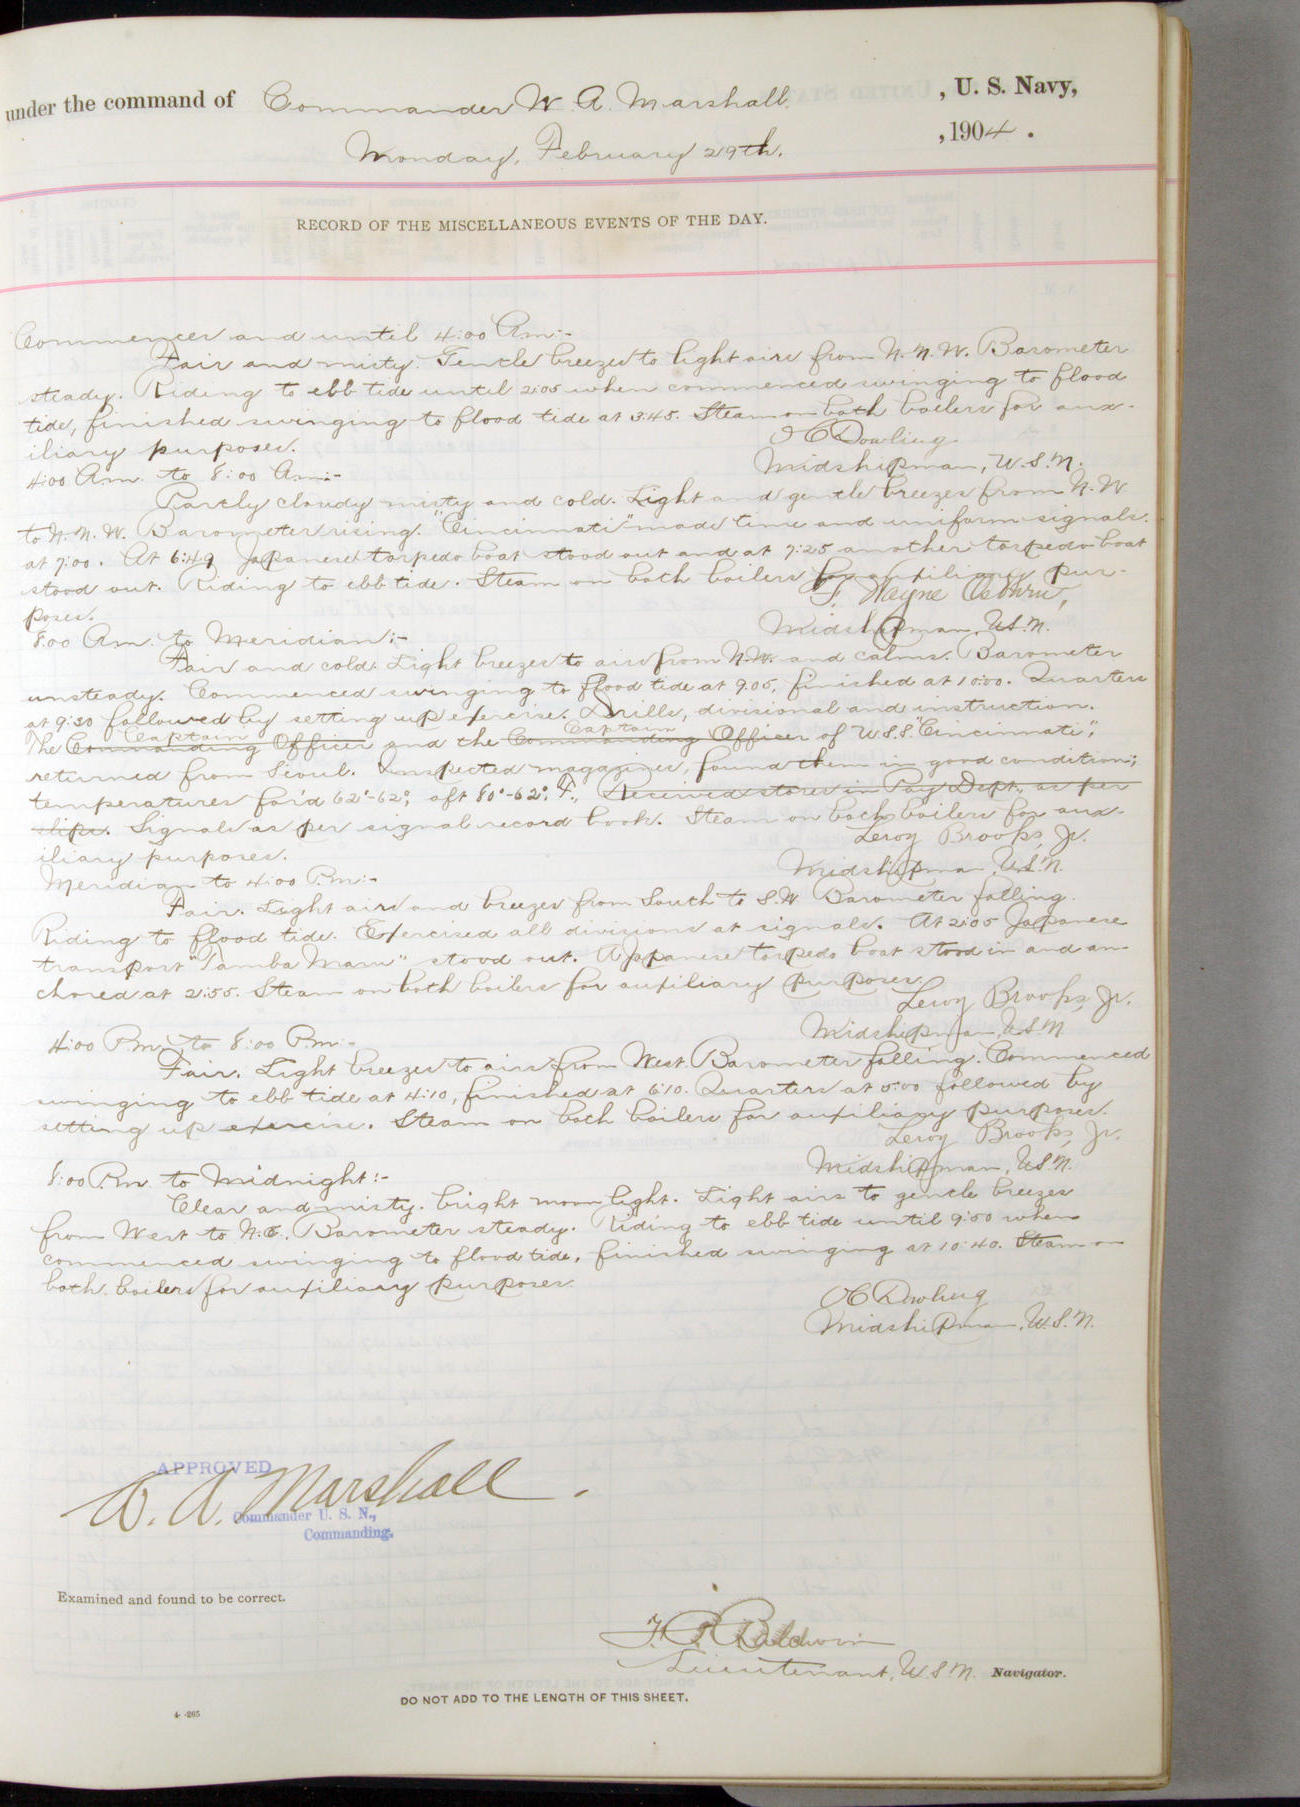 under the command of Commander W. A. Marshall, , U. S. Navy,
Monday, February 29th. , 1904 .
RECORD OF THE MISCELLANEOUS EVENTS OF THE DAY.
Commences and until 4:00 Am:-
Fair and misty. Gentle breezes to light airs from N.N.W. Barometer
steady. Riding to ebb tide until 2:05 when commenced swinging to flood
tide, finished swinging to flood tide at 3:45. Steam on both boilers for aux-
iliary purposes.
Dowling
Midshipman, U.S.N.
4:00 Am. to 8:00 Am:-
Partly cloudy misty and cold. Light and gentle breezes from N.W
to N.N.W. Barometer rising. "Cincinnati" made time and uniform signals.
at 7:00. At 6:49 Japanese torpedo boat stood out and at 7:25 another torpedo boat
stood out. Riding to ebb tide. Steam on both boilers for auxiliary pur-
poses.
F. Wayne Osburn,
Midshipman, U.S.N.
8:00 Am. to Meridian:-
Fair and cold. Light breezes to airs from N.W. and calms. Barometer
unsteady. Commenced swinging to flood tide at 9:05, finished at 10:00. Quarters
at 9:30 followed by setting up exercise. Drills, divisional and instruction.
Captain Captain
The Commanding Officer and the Commanding Officer of U.S.S. "Cincinnati",
returned from Seoul. Inspected magazines, found them in good condition;
temperatures for'd 62°-62°, aft 80°-62°, F., Received stores in Pay Dept. as per
slips. Signals as per signal record book. Steam on both boilers for aux-
iliary purposes.
Leroy Brooks, Jr.
Midshipman, U.S.N.
Meridian to 4:00 P.m:-
Fair. Light airs and breezes from South to S.W Barometer falling.
Riding to flood tide. Exercised all divisions at signals. At 2:05 Japanese
transport "Tamba Maru" stood out. A Japanese torpedo boat stood in and an-
chored at 2:55. Steam on both boilers for auxiliary purposes.
Leroy Brooks, Jr.
Midshipman, U.S.N
4:00 P.m. to 8:00 P.m:-
Fair. Light breezes to airs from West. Barometer falling. Commenced
swinging to ebb tide at 4:10, finished at 6:10. Quarters at 5:00 followed by
setting up exercise. Steam on both boilers for auxiliary purposes.
Leroy Brooks, Jr.
Midshipman, U.S.N.
8:00 P.m. to Midnight:-
Clear and misty. bright moon light. Light airs to gentle breezes
from West to N.E. Barometer steady. Riding to ebb tide until 9:50 when
commenced swinging to flood tide, finished swinging at 10:40. Steam on
both boilers for auxiliary purposes.
Dowling
Midshipman, U.S.N.
APPROVED
W. A. Marshall.
Commander U. S. N.,
Commanding.
Examined and found to be correct.
Baldwin
Lieutenant, U.S.N. Navigator.
DO NOT ADD TO THE LENGTH OF THIS SHEET.
4-205